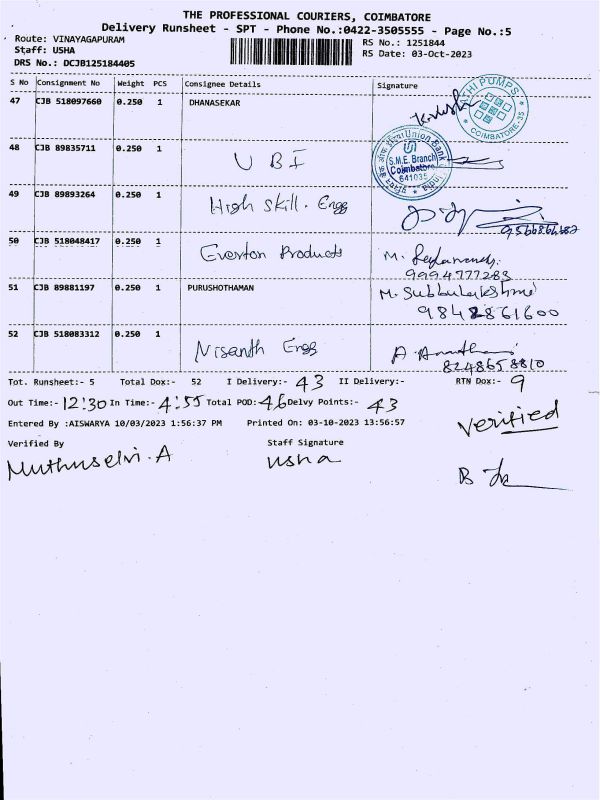 THE PROFESSIONAL COURIERS, COIMBATORE
Delivery Runsheet - SPT - Phone No.:0422-3505555 - Page No.:5
Route: VINAYAGAPURAM
Staff: USHA
DRS No.: DCJB125184405
RS No.: 1251844
RS Date: 03-Oct-2023
S No Consignment No Weight PCS Consignee Details Signature
47 CJB 518097660 0.250 1 DHANASEKAR
HI PUMPS COIMBATORE-35
48 CJB 89835711 0.250 1 UBI
Union Bank
S.M.E. Branch
Coimbatore
641035
49 CJB 89893264 0.250 1 High Skill. Engg
50 CJB 518048417 0.250 1 Everton Products M.
9994777283
51 CJB 89881197 0.250 1 PURUSHOTHAMAN M. Subbulakshmi
9842861600
52 CJB 518083312 0.250 1 Nisanth Engg A.
8248658810
Tot. Runsheet:- 5 Total Dox:- 52 I Delivery:- 43 II Delivery:- RTN Dox:- 9
Out Time:- 12:30 In Time:- 4:55 Total POD: 46 Delvy Points:- 43
Entered By :AISWARYA 10/03/2023 1:56:37 PM Printed On: 03-10-2023 13:56:57
Verified
Verified By Staff Signature
Muthuselvi.A usha